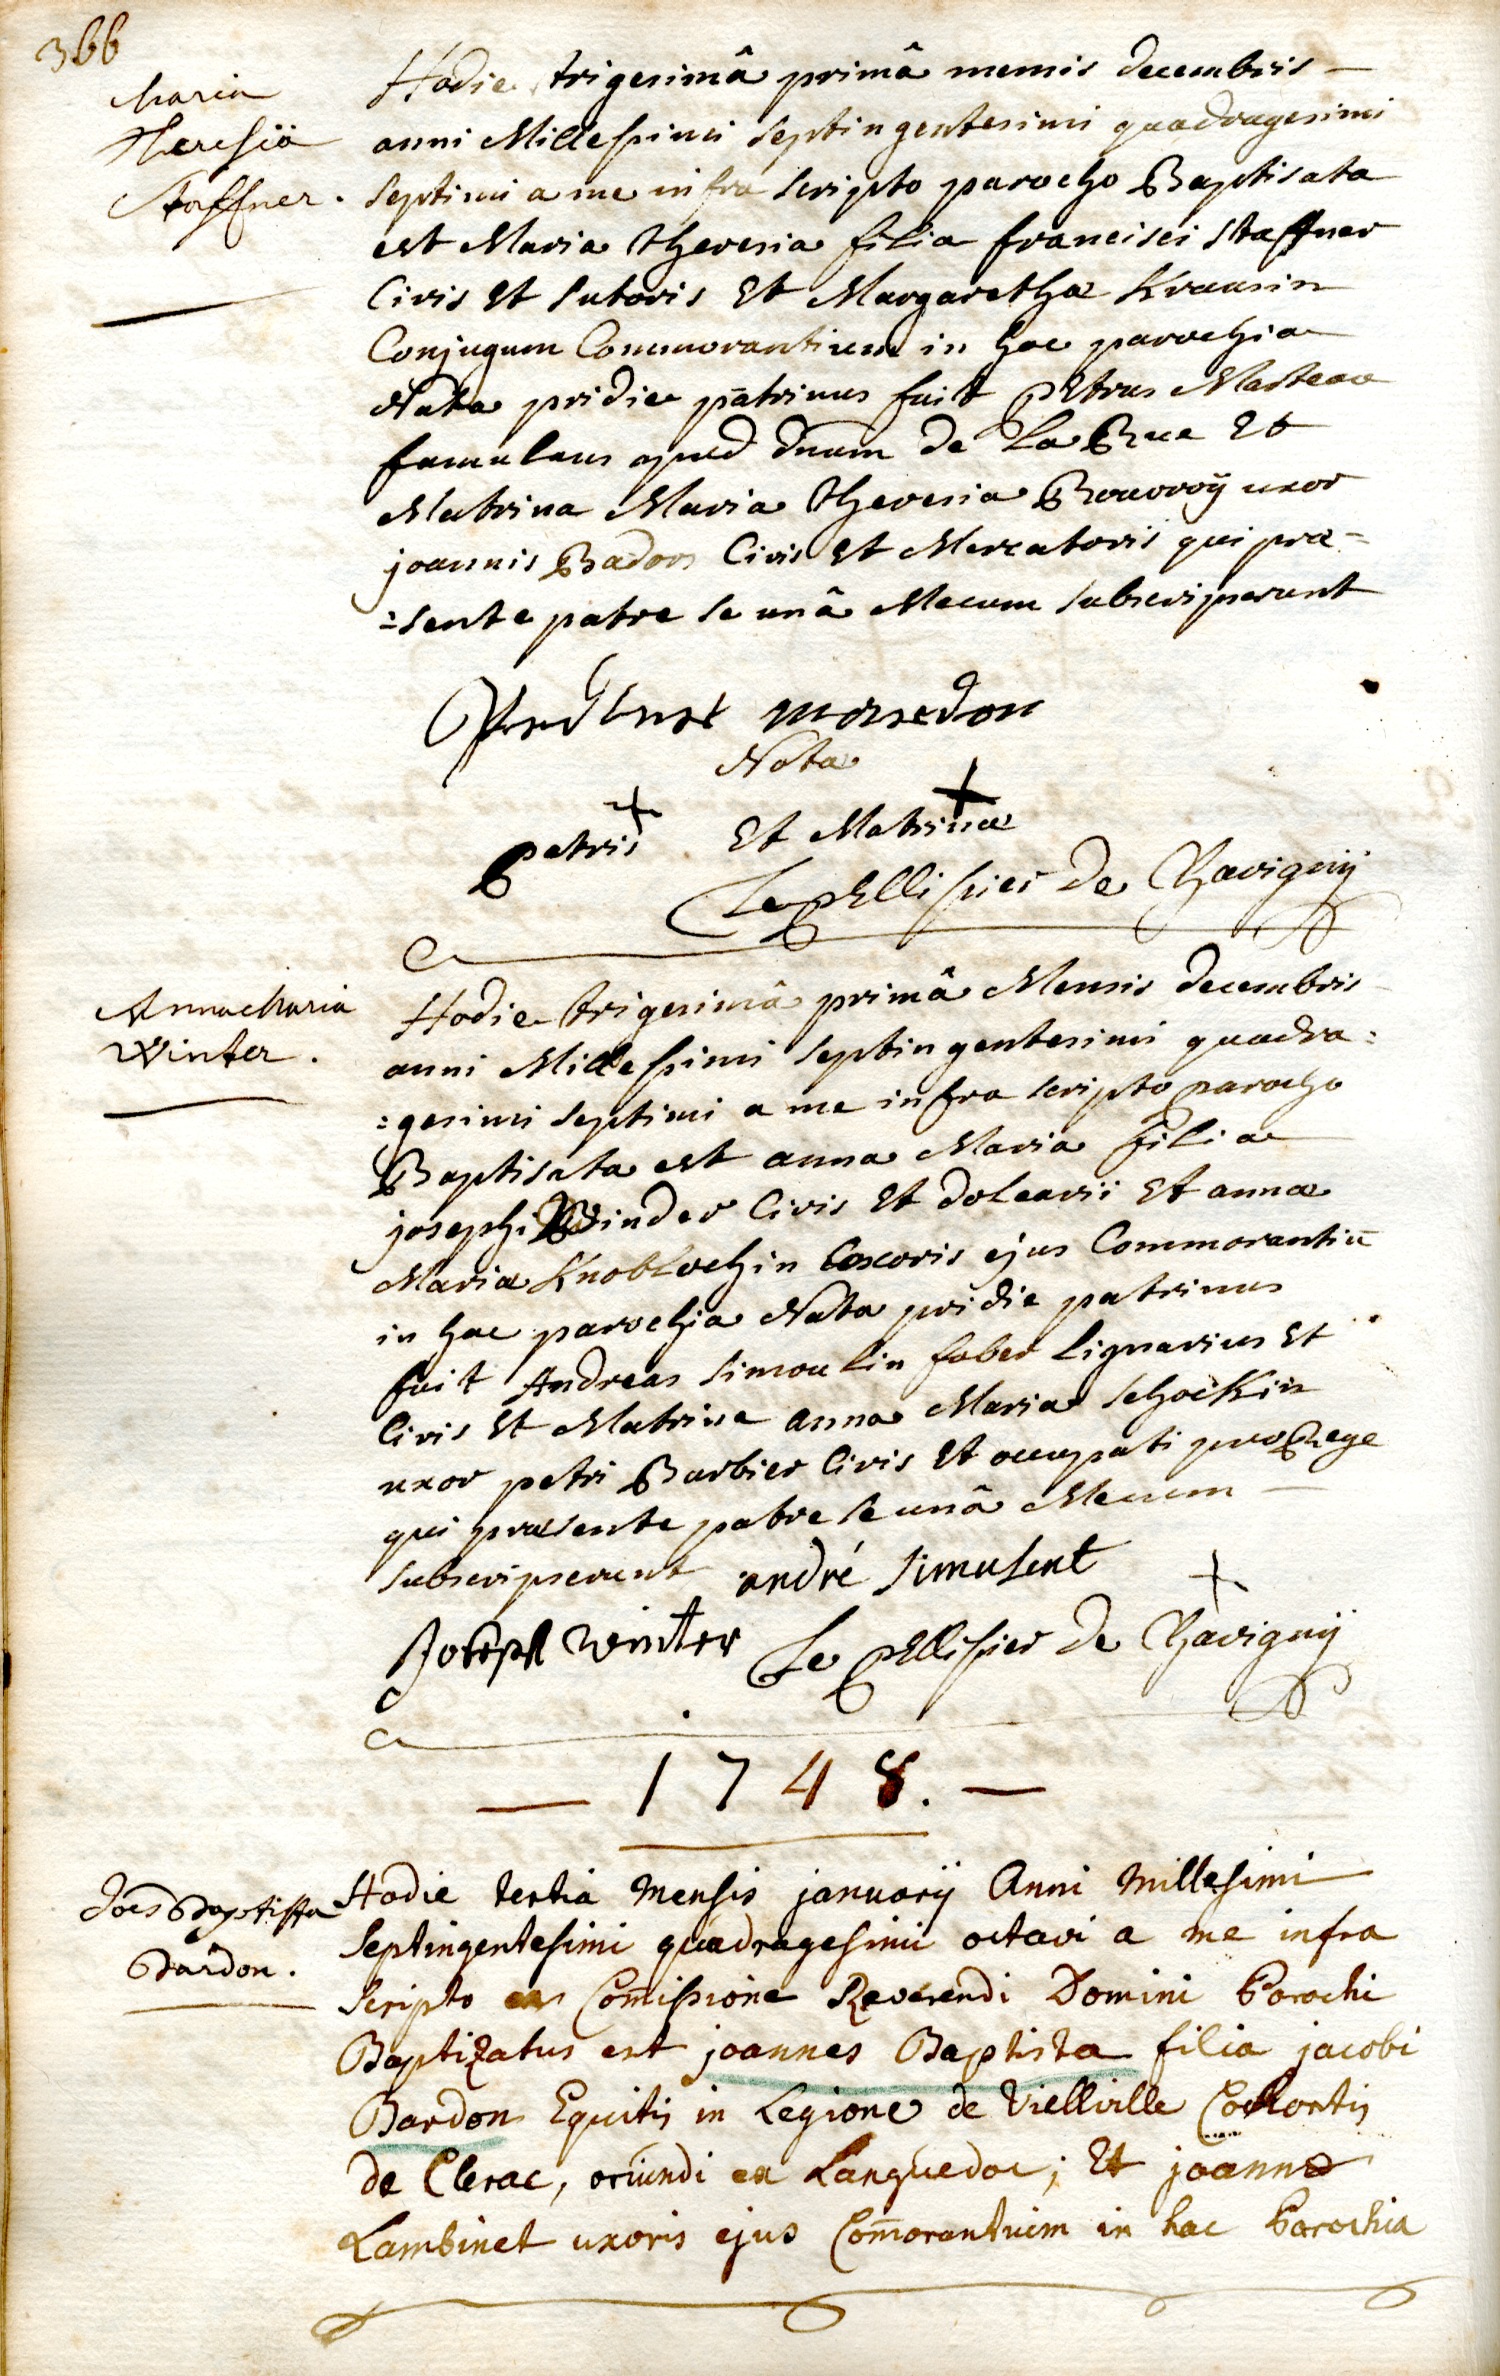 366
Maria
Theresia
Staffner.
Hodie trigesimâ primâ mensis decembris —
anni Millesimi septingentesimi quadragesimi
septimi a me infra scripto parocho Baptisata
est Maria theresia filia francisci staffner
Civis Et sutoris Et Margarethæ Krausin
Conjugum Commorantium in hac parochia
Nata pridie patrinus fuit pEtrus Marteau
famulans apud dnum de La Rue Et
Matrina Maria theresia Rouvroÿ uxor
joannis Badon Civis Et Mercatoris qui præ=
=sente patre se unâ Mecum subscripserunt
Nota
patris Et Matrinæ
Le pEllissier de Chavignÿ
Anna Maria
Winter.
Hodie trigesimâ primâ Mensis decembris
anni Millesimi septingentesimi quadra=
=gesimi septimi a me infra scripto parocho
Baptisata est anna Maria filia
josephi Winder Civis Et dolearii Et annæ
Mariæ Knoblochin uxoris ejus Commorantiū
in hac parochia Nata pridie patrinus
fuit Andreas simoulin faber lignarius Et
Civis Et Matrina anna Maria schockin
uxor petri Barbier Civis Et occupati pro Rege
qui præsente patre se unâ Mecum —
subscripserunt andré simulent
Joseph Winter Le pEllissier de Chavignÿ
— 1748. —
Joēs Baptista
Bardon.
Hodie tertia Mensis januarÿ Anni Millesimi
Septingentesimi quadragesimi octavi a me infra
Scripto ex Com̄issione Reverendi Domini Parochi
Baptizatus est joannes Baptista filia jacobi
Bardon Equitis in Legione de Vielleville Cohortis
de Clerac, oriundi ex Languedoc; Et joannæ
Lambinet uxoris ejus Com̄orantium in hac Parochia